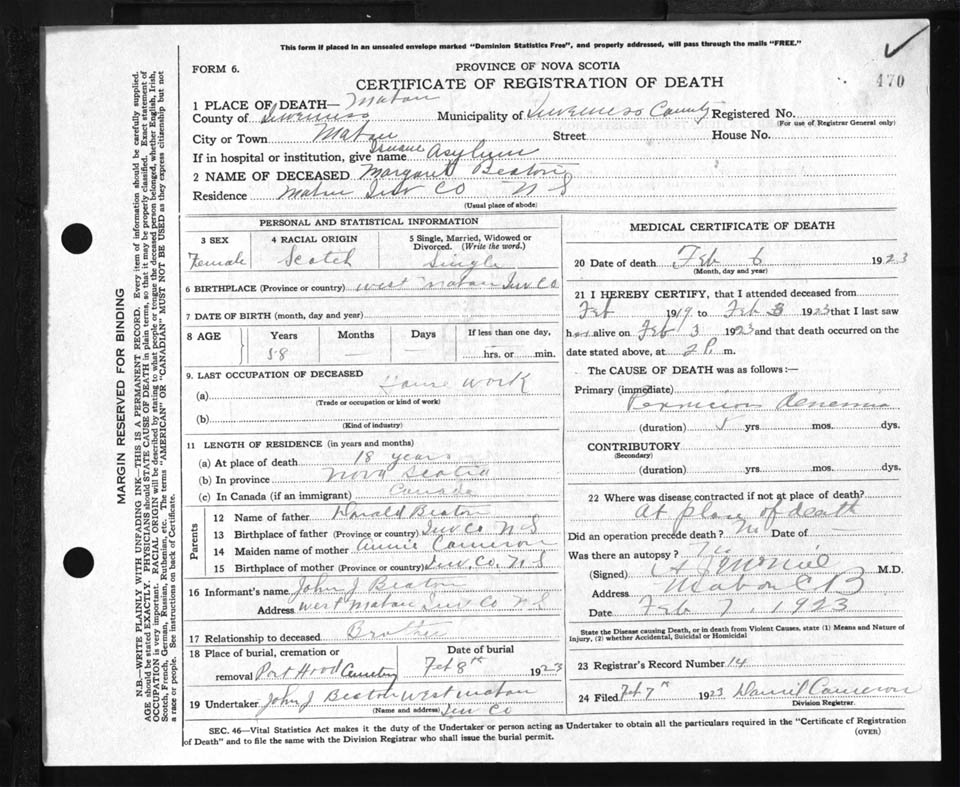 This form if placed in an unsealed envelope marked "Dominion Statistics Free", and properly addressed, will pass through the mails "FREE."
FORM 6.
PROVINCE OF NOVA SCOTIA
CERTIFICATE OF REGISTRATION OF DEATH
470
1 PLACE OF DEATH— Mabou
County of Inverness Municipality of Inverness County Registered No.
(For use of Registrar General only)
City or Town Mabou Street House No.
If in hospital or institution, give name Insane Asylum
2 NAME OF DECEASED Margaret Beaton
Residence Mabou Inv Co N S
(Usual place of abode)
PERSONAL AND STATISTICAL INFORMATION
3 SEX 4 RACIAL ORIGIN 5 Single, Married, Widowed or Divorced. (Write the word.)
Female Scotch Single
6 BIRTHPLACE (Province or country) West Mabou Inv Co
7 DATE OF BIRTH (month, day and year)
8 AGE Years Months Days If less than one day,
58 — — hrs. or min.
9. LAST OCCUPATION OF DECEASED
(a) House work
(Trade or occupation or kind of work)
(b)
(Kind of industry)
11 LENGTH OF RESIDENCE (in years and months)
(a) At place of death 18 years
(b) In province Nova Scotia
(c) In Canada (if an immigrant) Canada
Parents
12 Name of father Donald Beaton
13 Birthplace of father (Province or country) Inv Co N S
14 Maiden name of mother Annie Cameron
15 Birthplace of mother (Province or country) Inv. Co. N S
16 Informant's name John J Beaton
Address West Mabou Inv Co N S
17 Relationship to deceased Brother
18 Place of burial, cremation or removal Port Hood Cemetry
Date of burial
Feb 8th 1923
19 Undertaker John J Beaton West Mabou
(Name and address) Inv Co
MEDICAL CERTIFICATE OF DEATH
20 Date of death Feb 6 1923
(Month, day and year)
21 I HEREBY CERTIFY, that I attended deceased from
Feb 1919 to Feb 3 1923 that I last saw
her alive on Feb 3 1923 and that death occurred on the
date stated above, at 2 P. m.
The CAUSE OF DEATH was as follows:—
Primary (immediate)
Pernicious Anemia
(duration) yrs. mos. dys.
CONTRIBUTORY
(Secondary)
(duration) yrs. mos. dys.
22 Where was disease contracted if not at place of death?
At place of death
Did an operation precede death? No Date of
Was there an autopsy? No
(Signed) M.D.
Address Mabou C B
Date Feb 7, 1923
State the Disease causing Death, or in death from Violent Causes, state (1) Means and Nature of Injury, (2) whether Accidental, Suicidal or Homicidal
23 Registrar's Record Number 14
24 Filed Feb 7th 1923 Daniel Cameron
Division Registrar.
SEC. 46—Vital Statistics Act makes it the duty of the Undertaker or person acting as Undertaker to obtain all the particulars required in the "Certificate of Registration
of Death" and to file the same with the Division Registrar who shall issue the burial permit.
(OVER)
MARGIN RESERVED FOR BINDING
N.B.—WRITE PLAINLY WITH UNFADING INK—THIS IS A PERMANENT RECORD. Every item of information should be carefully supplied.
AGE should be stated EXACTLY. PHYSICIANS should STATE CAUSE OF DEATH in plain terms, so that it may be properly classified. Exact statement of
OCCUPATION is very important. RACIAL ORIGIN will be described by stating to what people or tongue the deceased person belonged, whether English, Irish,
Scotch, French, German, Russian, Ruthenian, etc. The terms "AMERICAN" OR "CANADIAN" MUST NOT BE USED as they express citizenship but not
a race or people. See instructions on back of Certificate.